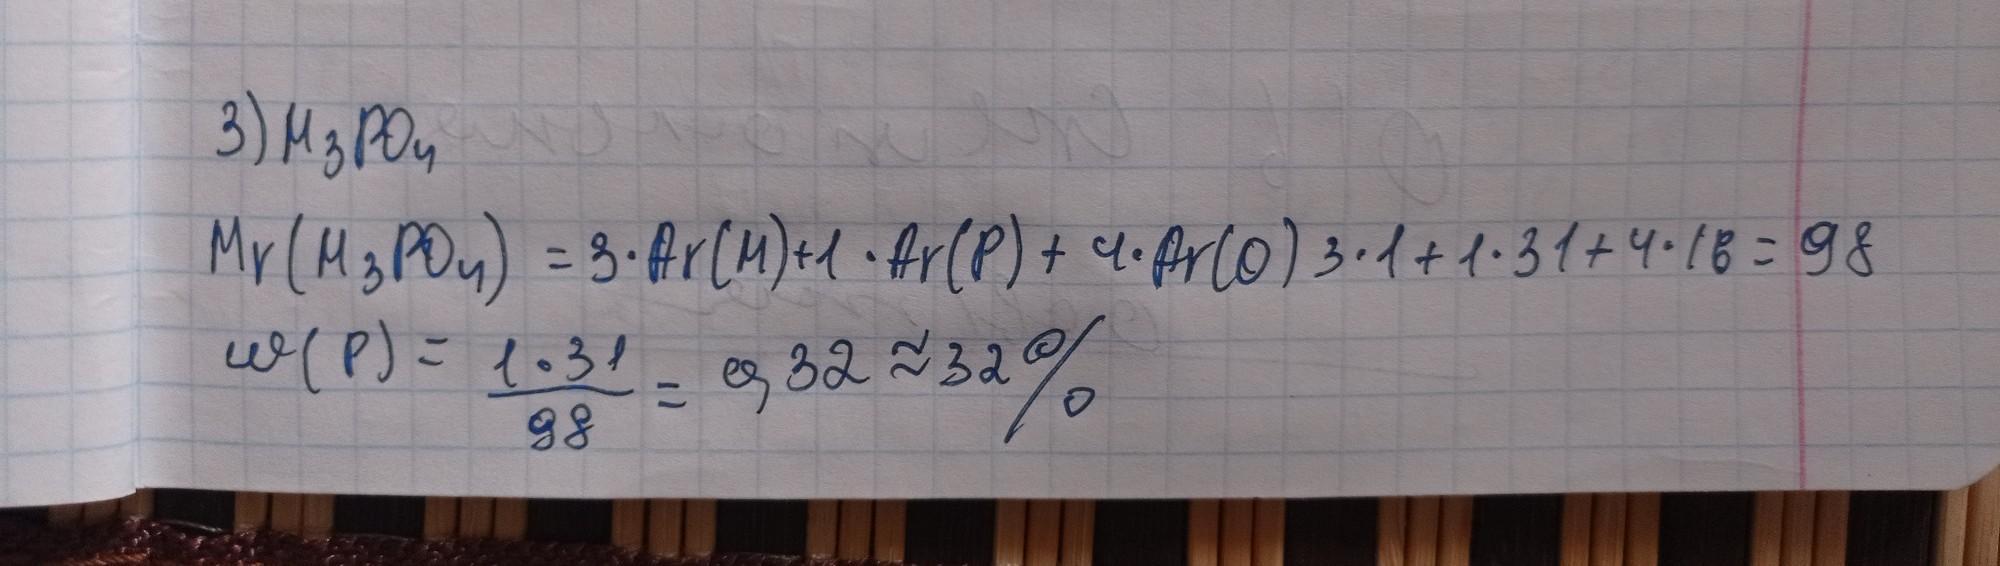 3) H₃PO₄
Mr(H₃PO₄) = 3·Ar(H)+1·Ar(P)+4·Ar(O) 3·1+1·31+4·16=98
w(P) = 1·31/98 = 0,32 ≈ 32%